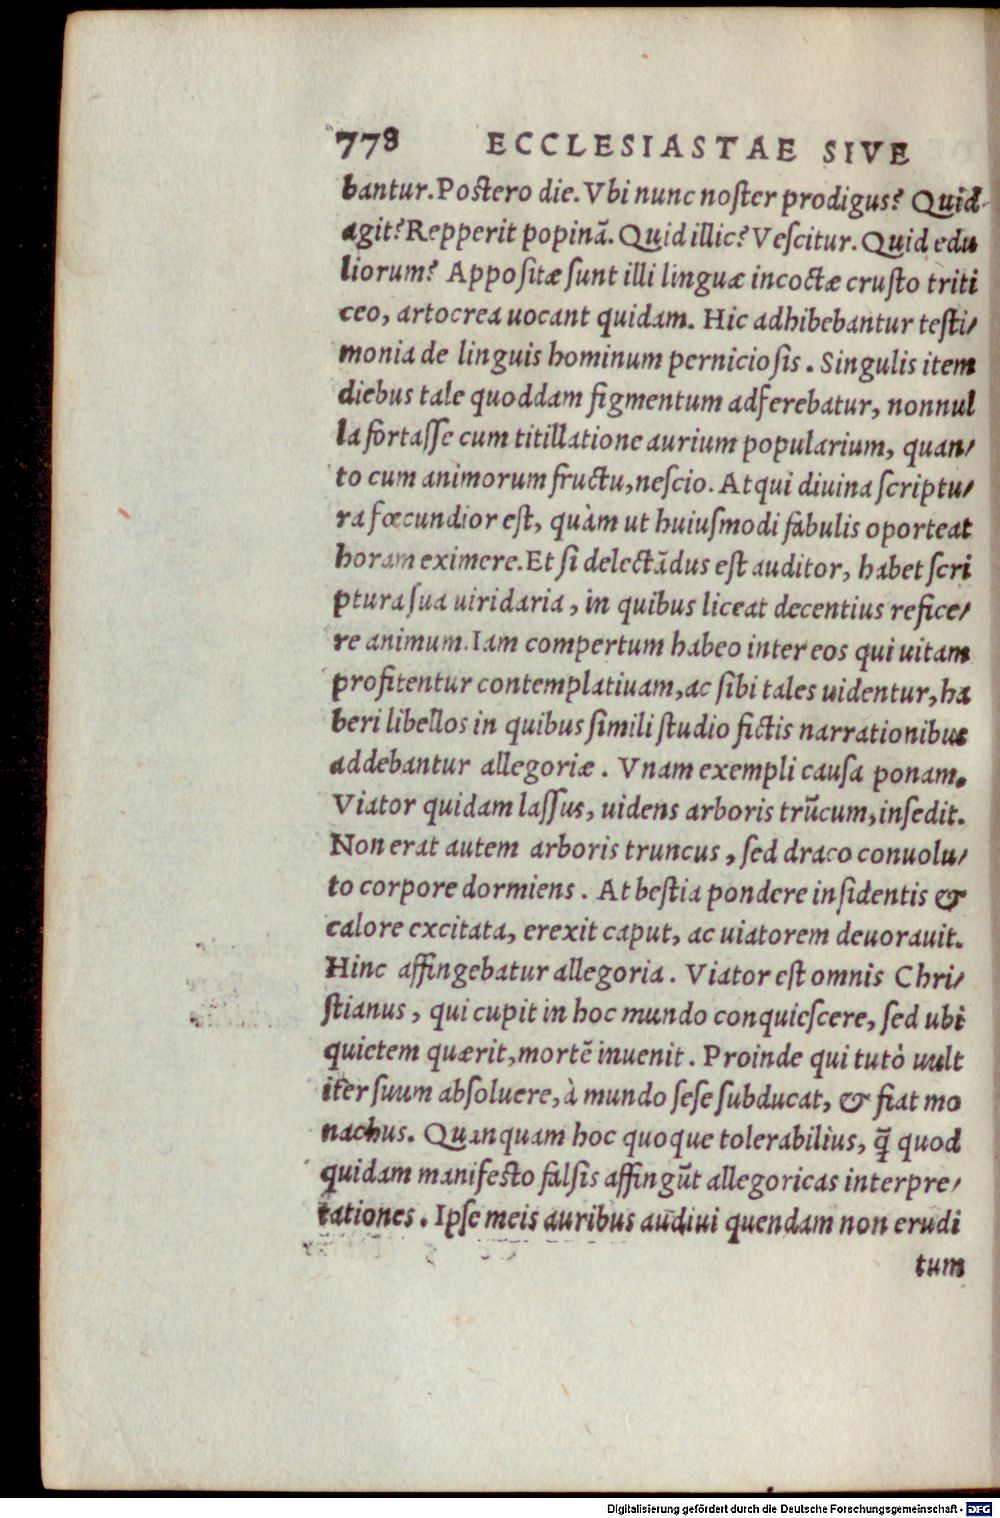 778 ECCLESIASTAE SIVE
bantur. Postero die. Vbi nunc noſter prodigus? Quid
agit? Repperit popinā. Quid illic? Veſcitur. Quid edu
liorum? Appoſitæ ſunt illi linguæ incoctæ cruſto triti
ceo, artocrea uocant quidam. Hic adhibebantur teſti/
monia de linguis hominum pernicioſis. Singulis item
diebus tale quoddam figmentum adferebatur, nonnul
la fortaſſe cum titillatione aurium popularium, quan/
to cum animorum fructu, neſcio. Atqui diuina ſcriptu/
ra fœcundior eſt, quàm ut huiuſmodi fabulis oporteat
horam eximere. Et ſi delectādus eſt auditor, habet ſcri
ptura ſua uiridaria, in quibus liceat decentius refice/
re animum. Iam compertum habeo inter eos qui uitam
profitentur contemplatiuam, ac ſibi tales uidentur, ha
beri libellos in quibus ſimili ſtudio fictis narrationibus
addebantur allegoriæ. Vnam exempli cauſa ponam.
Viator quidam laſſus, uidens arboris trūcum, inſedit.
Non erat autem arboris truncus, ſed draco conuolu/
to corpore dormiens. At beſtia pondere inſidentis &
calore excitata, erexit caput, ac uiatorem deuorauit.
Hinc affingebatur allegoria. Viator eſt omnis Chri/
ſtianus, qui cupit in hoc mundo conquieſcere, ſed ubi
quietem quærit, mortē inuenit. Proinde qui tutò uult
iter ſuum abſoluere, à mundo ſeſe ſubducat, & fiat mo
nachus. Quanquam hoc quoque tolerabilius, q̄ quod
quidam manifeſto falſis affingūt allegoricas interpre/
tationes. Ipſe meis auribus audiui quendam non erudi
tum
Digitalisierung gefördert durch die Deutsche Forschungsgemeinschaft - DFG